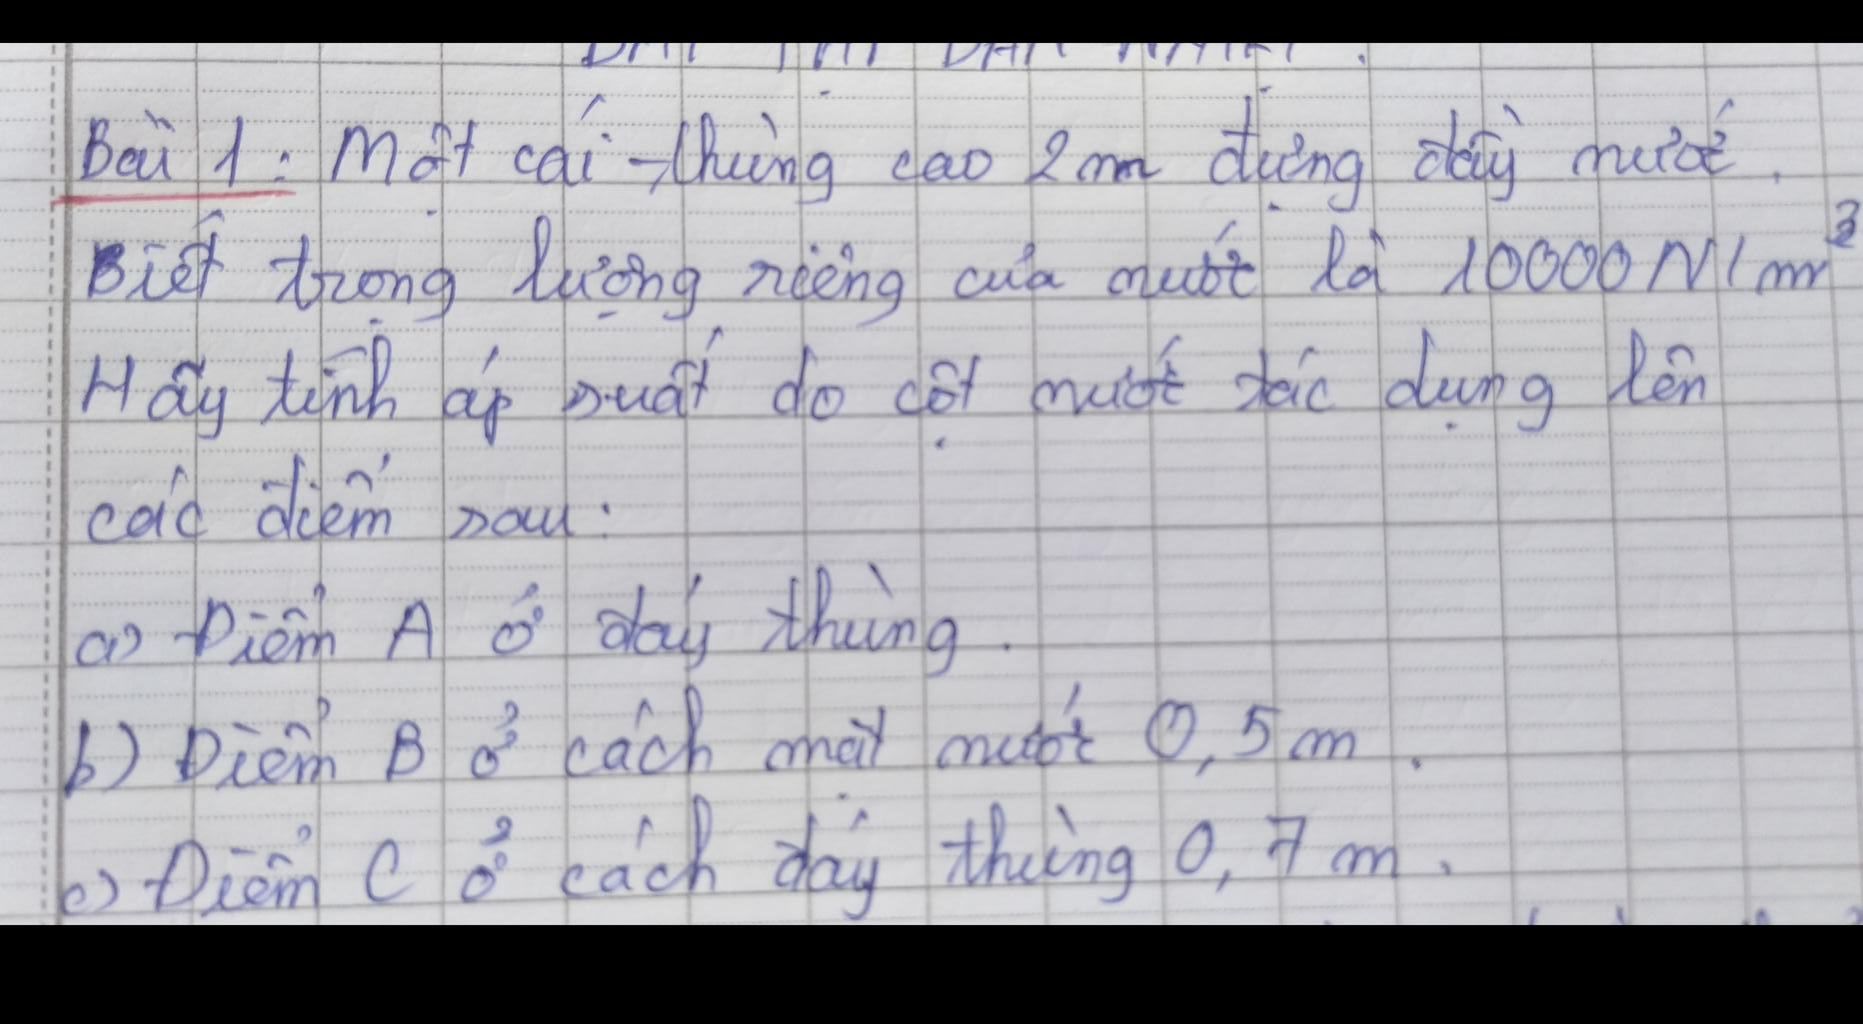 Bài 1: Một cái thùng cao 2m đựng đầy nước.
Biết trọng lượng riêng của nước là 10000N/m³
Hãy tính áp suất do cột nước tác dụng lên
các điểm sau:
a) Điểm A ở đáy thùng.
b) Điểm B ở cách mặt nước 0,5m.
c) Điểm C ở cách đáy thùng 0,7m.